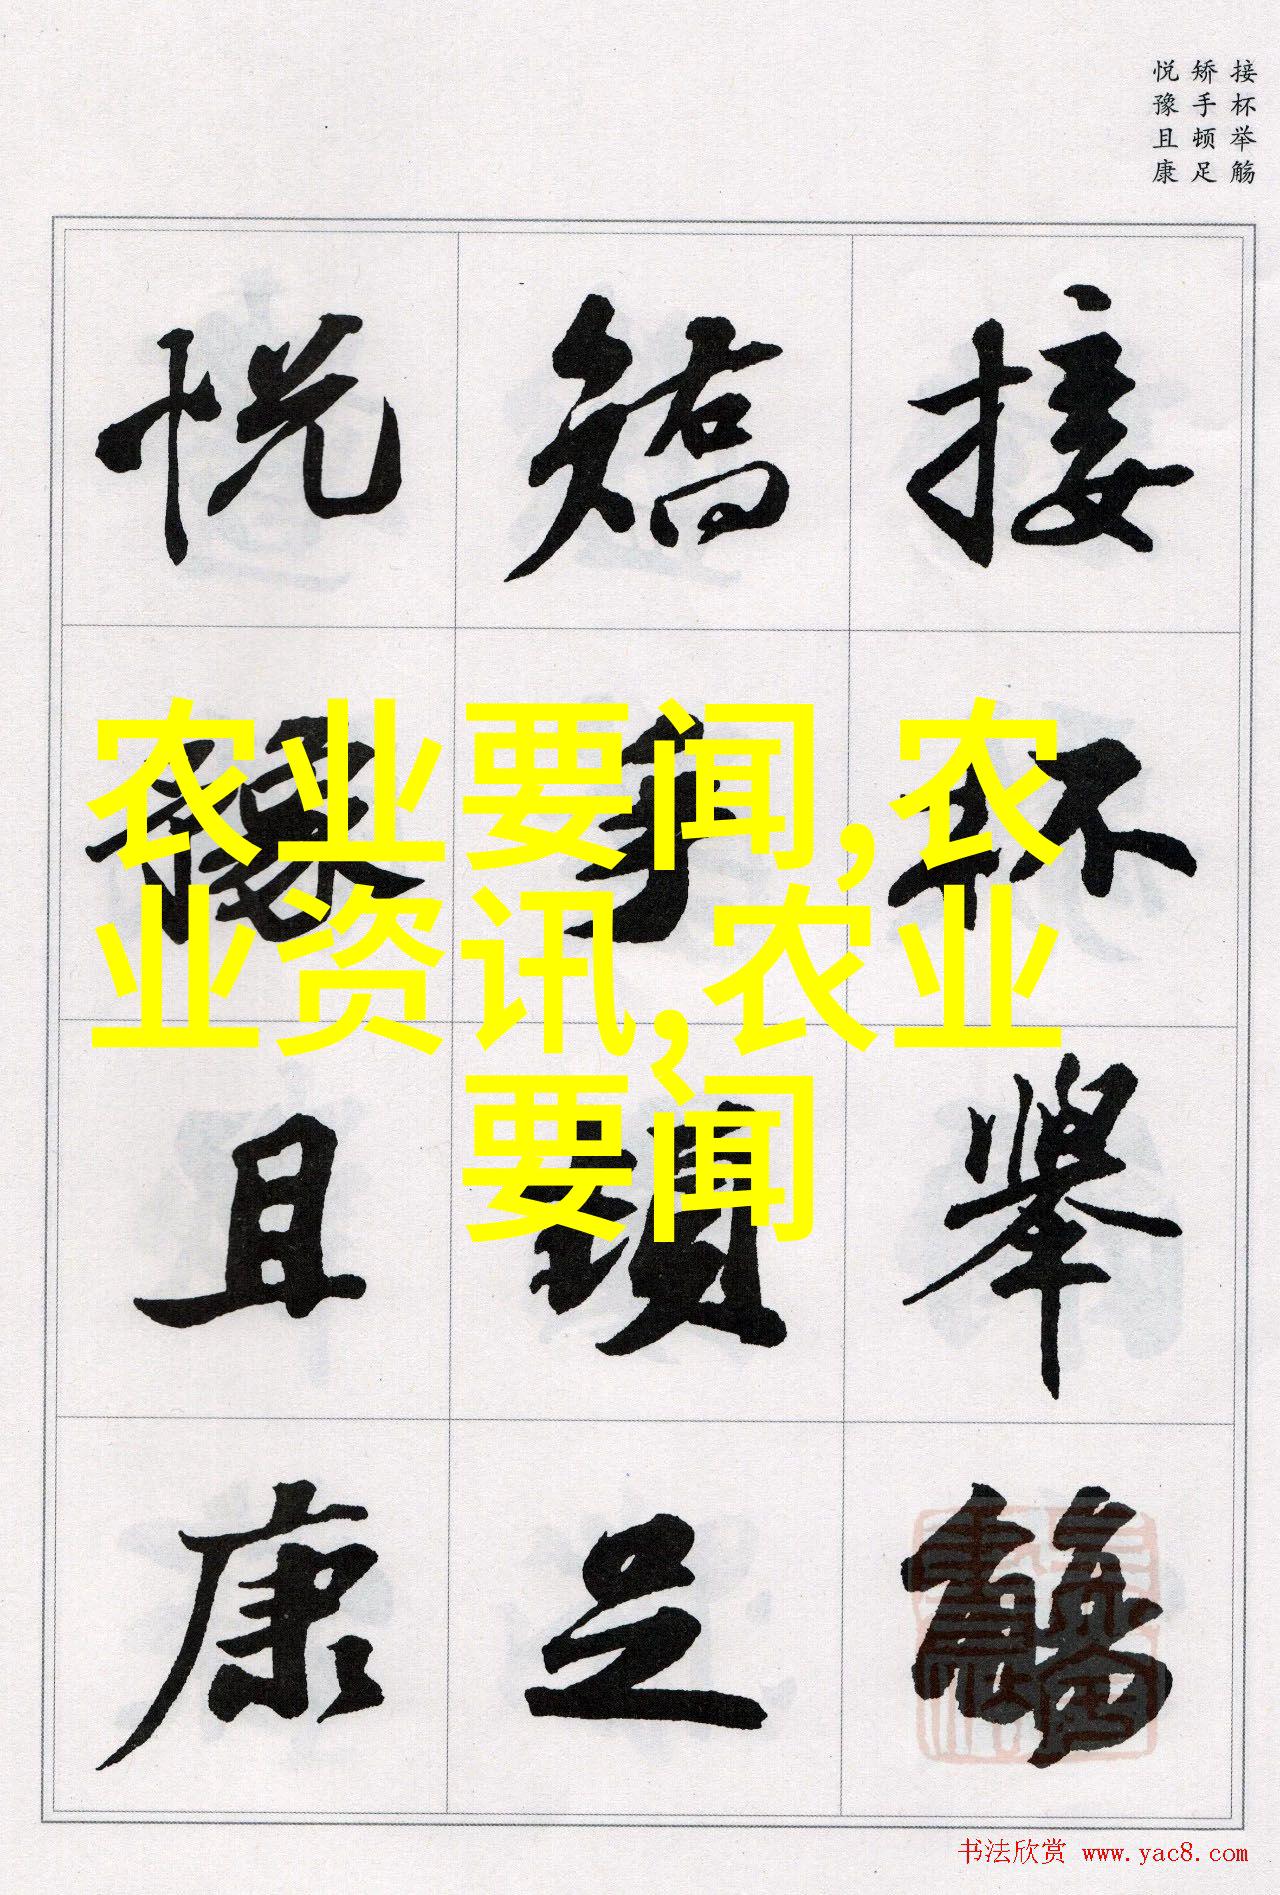 接杯举觞
矫手顿足
悦豫且康
接杯舉觴
矯手頓足
悦豫且康
农业要闻,农
业资讯,农业
要闻
书法欣赏 www.yac8.com